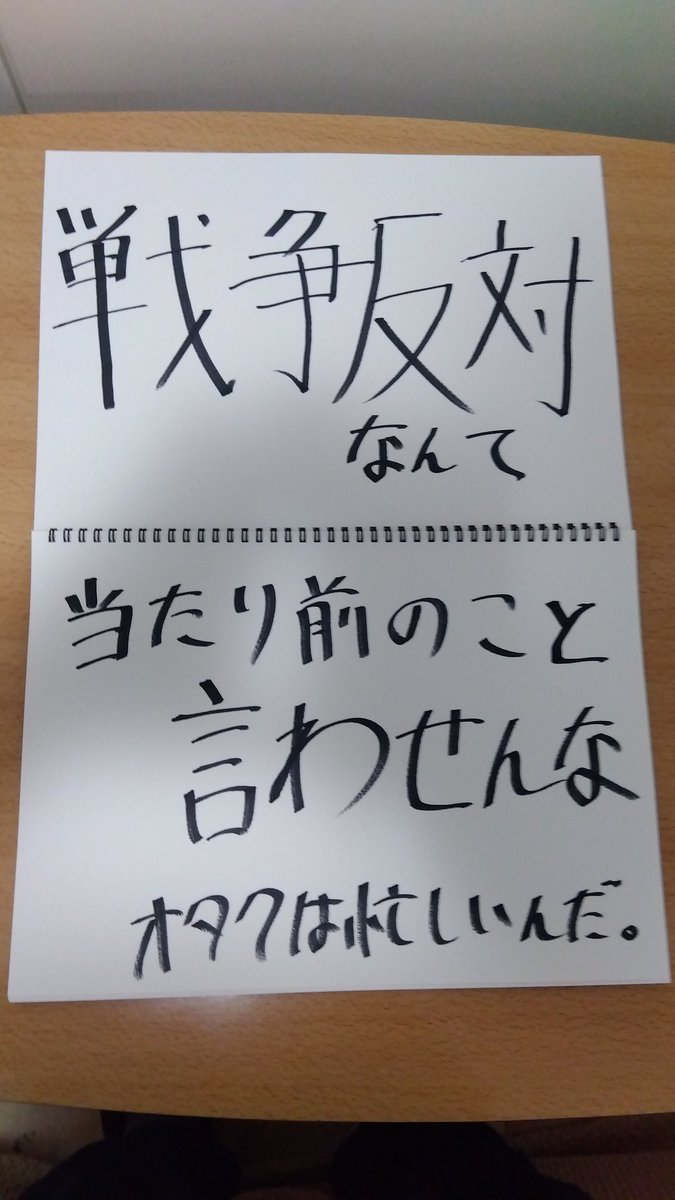 戦争反対
なんて
当たり前のこと
言わせんな
オタクは忙しいんだ。